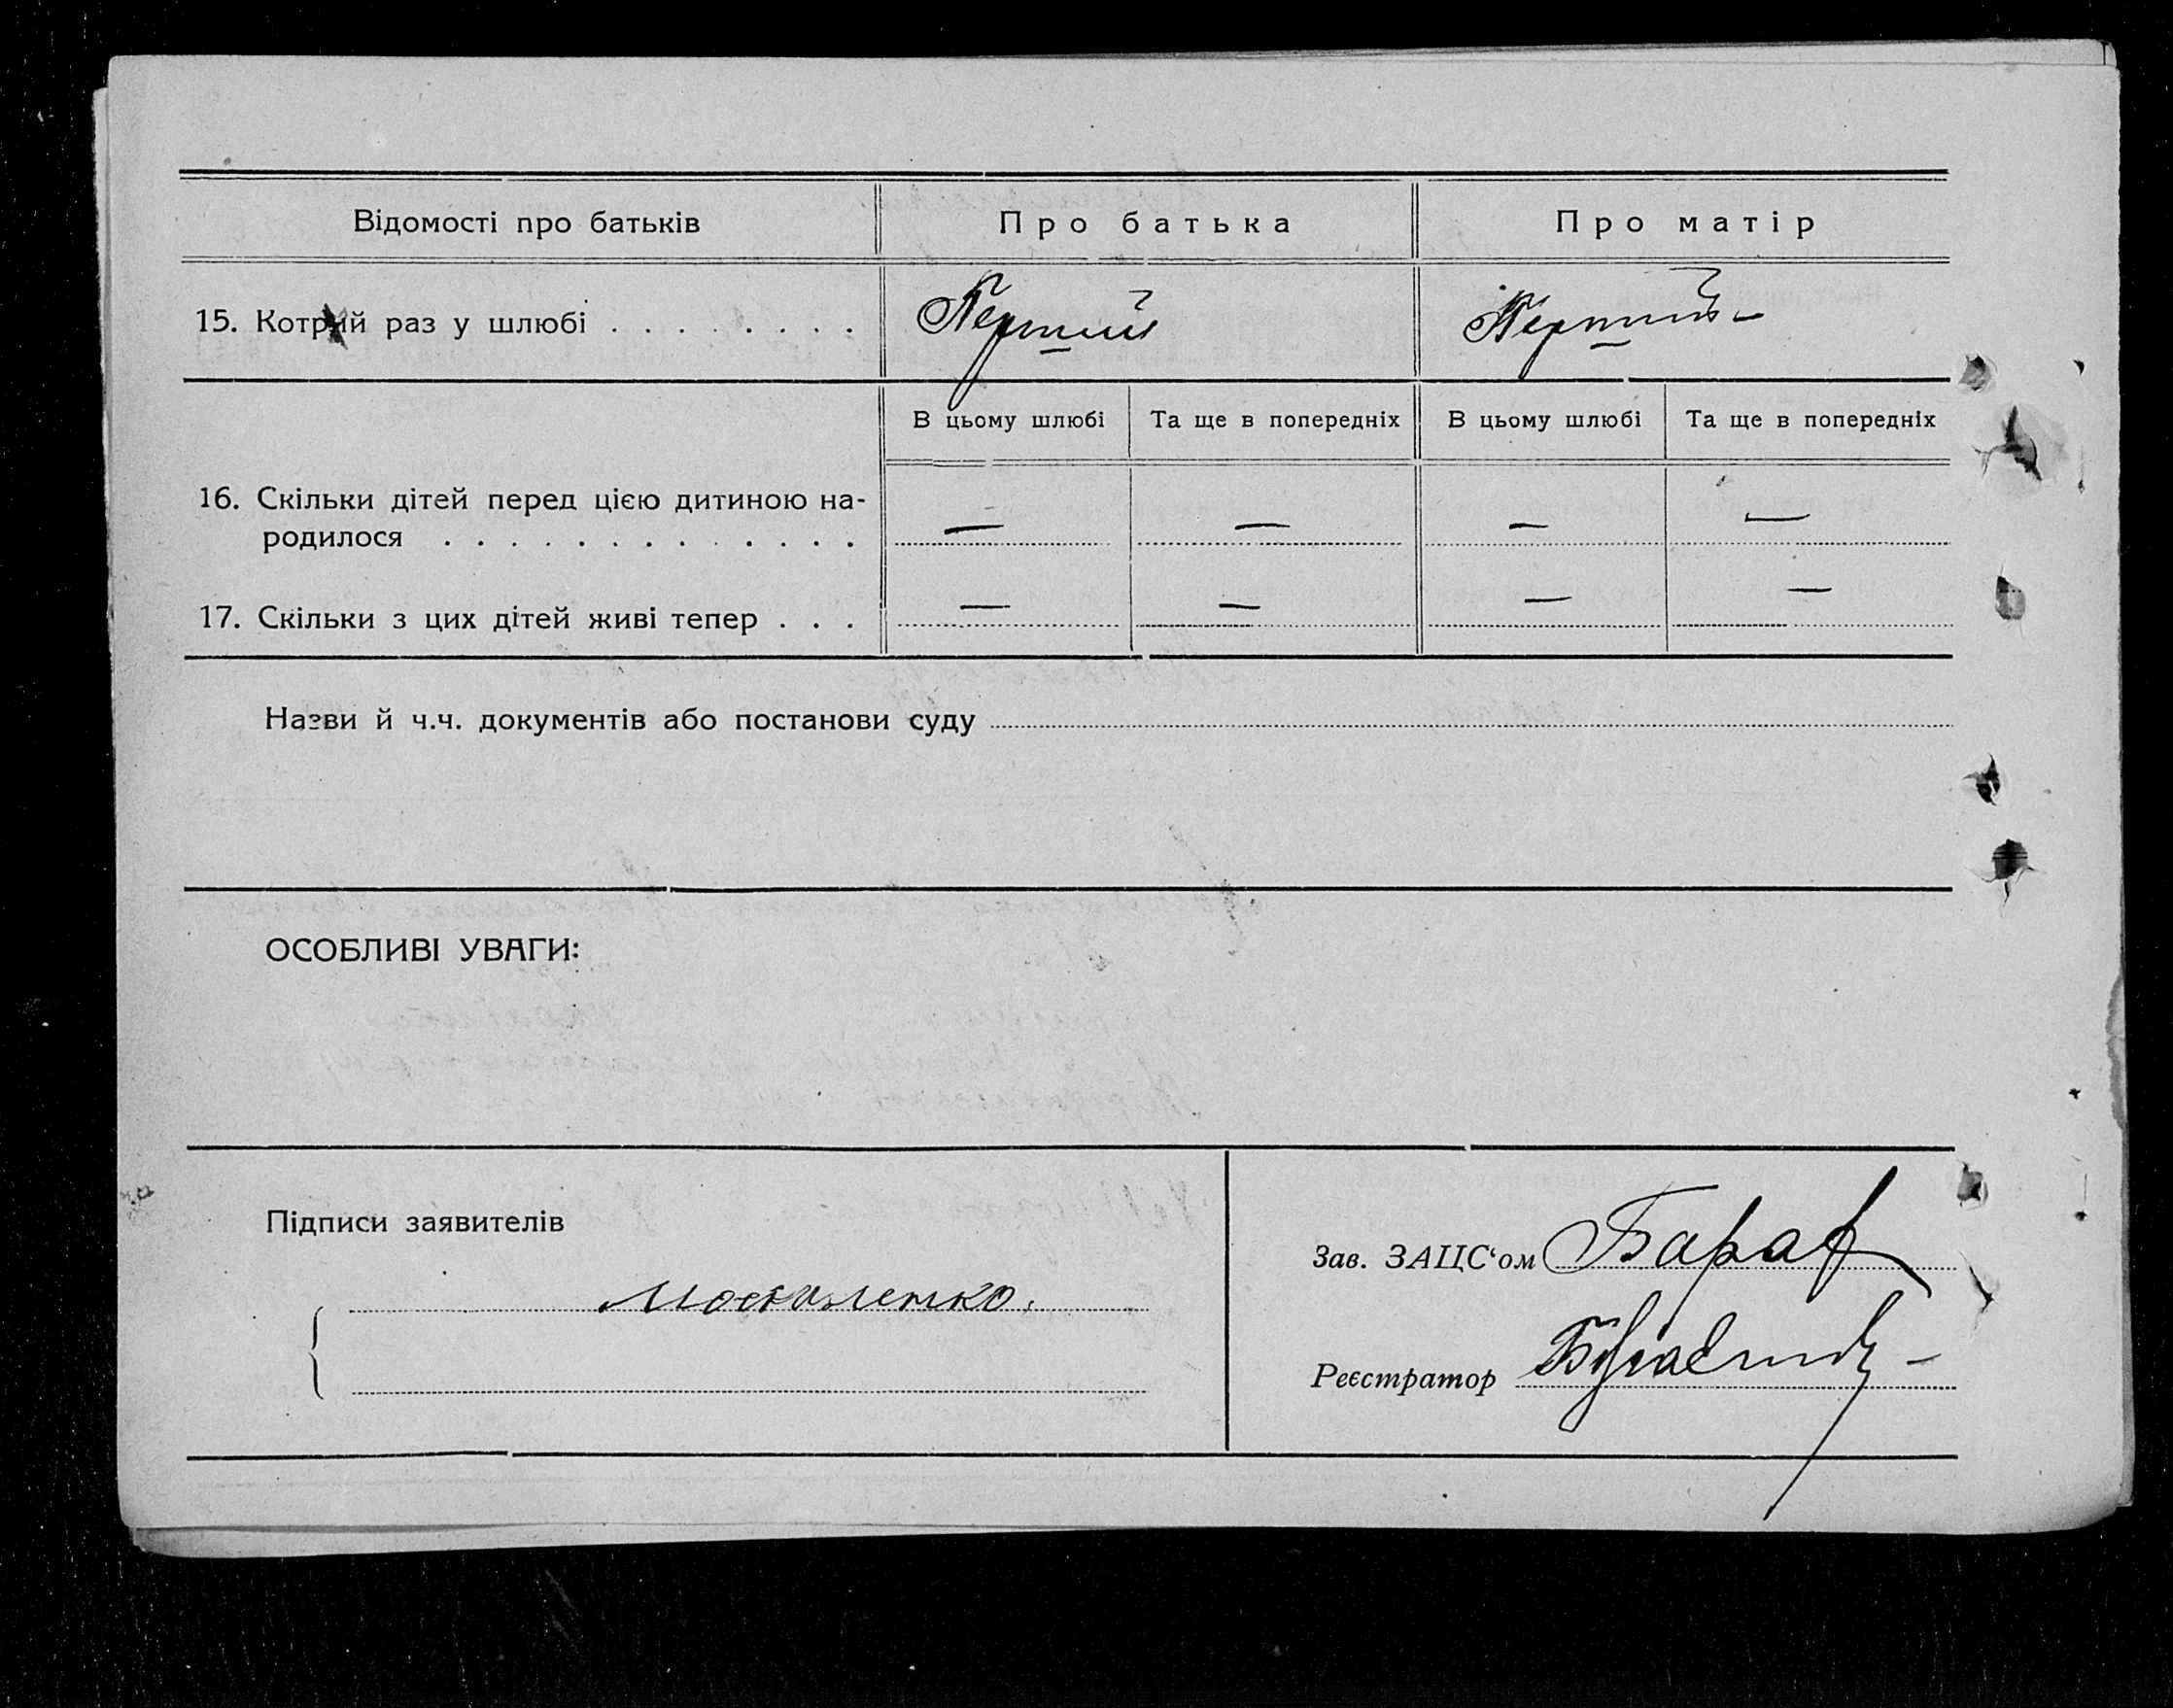 Відомості про батьків Про батька Про матір
15. Котрий раз у шлюбі . . . . . . . . Перший Перший —
В цьому шлюбі Та ще в попередніх В цьому шлюбі Та ще в попередніх
16. Скільки дітей перед цією дитиною на-
родилося . . . . . . . . . . . . . — — — —
17. Скільки з цих дітей живі тепер . . . — — — —
Назви й ч.ч. документів або постанови суду
ОСОБЛИВІ УВАГИ:
Підписи заявителів
Москаленко.
Зав. ЗАЦС‘ом
Реєстратор